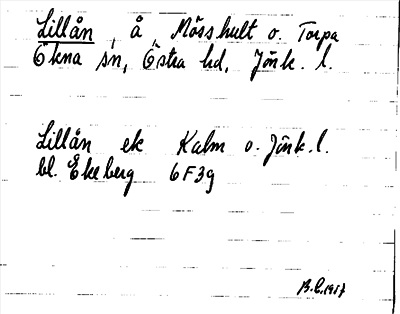 Lillån, å, Mösshult o. Torpa
Ökna sn, Östra hd, Jönk. l.
Lillån ek Kalm o. Jönk. l.
bl. Ekeberg 6F3g
B.E. 1917